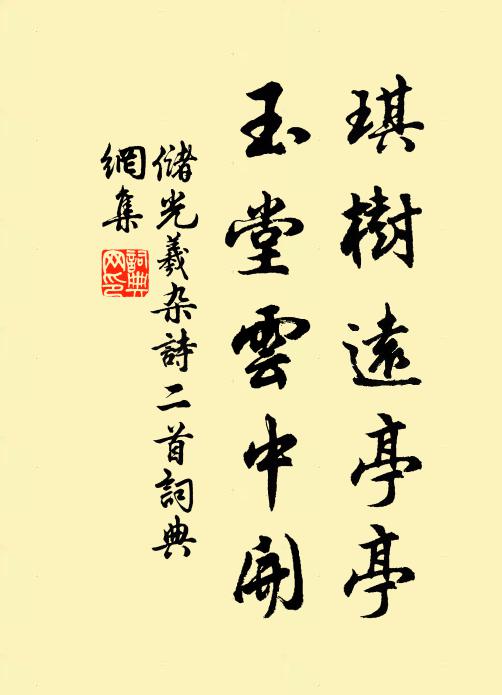 琪樹遠亭亭
玉堂雲中開
儲光羲杂詩二首詞典
網集
詞典
网印